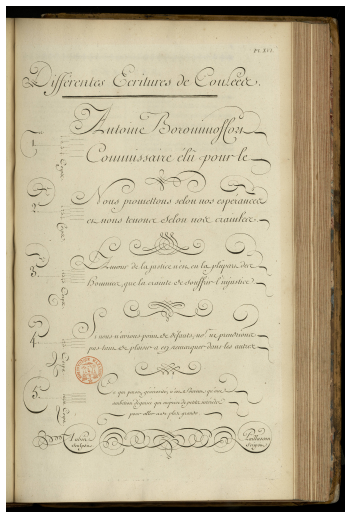 Pl. XVI.
Différentes Ecritures de Coulée.
1
Antoine
Commissaire élû pour le
2
Nous promettons selon nos esperances
et nous tenons selon nos craintes.
3
L'amour de la justice n'est en la plupart des
hommes, que la crainte de souffrir l'injustice.
4
Si nous n'avions point de défauts, nous ne prendrions
pas tant de plaisir a en remarquer dans les autres.
5
Ce qui paroit générosité n'est souvent qu'une
ambition déguisée qui méprise de petits interêts
pour aller a de plus grands.
Aubin
Sculpsit
Paillasson
Scripsit